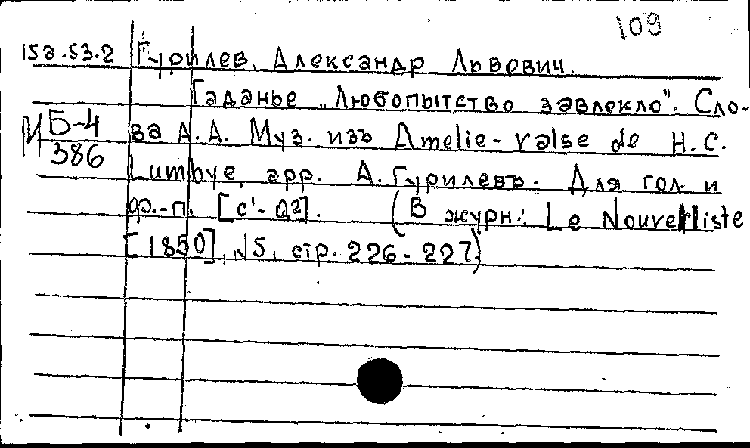 109
15а.53.2 Гурилев, Александр Львович.
Гаданье „Любопытство завлекло". Сло-
И Б-4 ва А.А. Муз. изъ Amelie-valse de H.C.
386 Lumbye, арр. А. Гурилевъ. Для гол. и
ф.-п. [c'-a2]. (В журн: Le Nouvelliste
[1850], №5, стр. 226-227)